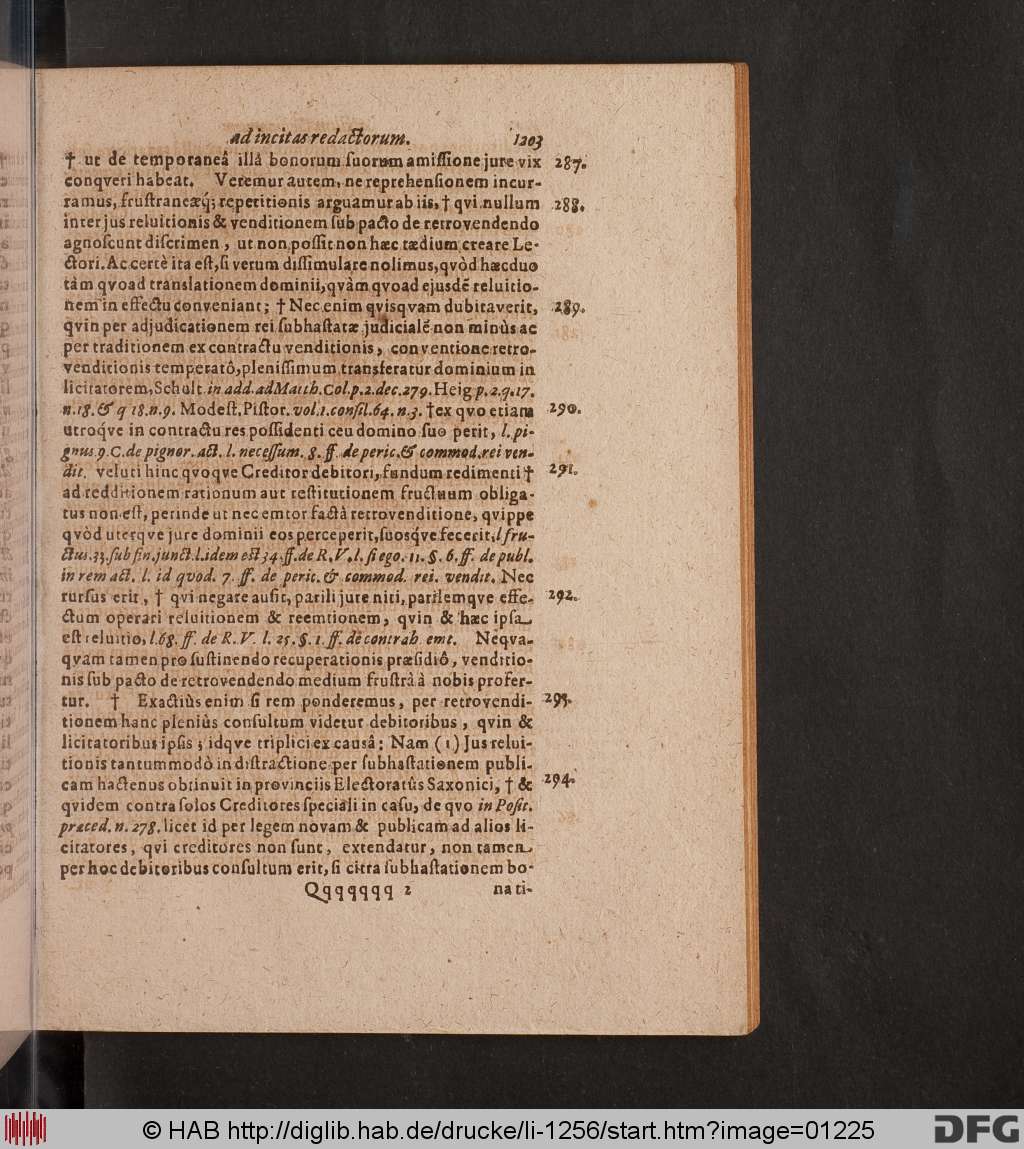 ad incitas redactorum. 1203
† ut de temporaneâ illâ bonorum ſuorum amiſſione jure vix 287.
conqveri habeat. Veremur autem, ne reprehenſionem incur-
ramus, fruſtraneæq́; repetitionis arguamur ab iis, † qvi nullum 288.
inter jus reluitionis & venditionem ſub pacto de retrovendendo
agnoſcunt diſcrimen, ut non poſſit non hæc tædium creare Le-
ctori. Ac certè ita eſt, ſi verum diſſimulare nolimus, qvòd hæc duo
tàm qvoad translationem dominii, qvàm qvoad ejusdẽ reluitio-
nem in effectu conveniant; † Nec enim qvisqvam dubitaverit, 289.
qvin per adjudicationem rei ſubhaſtatæ judicialẽ non minùs ac
per traditionem ex contractu venditionis, conventione retro-
venditionis temperatô, pleniſſimum transferatur dominium in
licitatorem, Schult. in add. ad Matth. Col. p. 2. dec. 279. Heig p. 2. q. 17.
n. 18. & q 18. n. 9. Modeſt. Piſtor. vol. 1. conſil. 64. n. 3. † ex qvo etiam 290.
utroq́ve in contractu res poſſidenti ceu domino ſuo perit, l. pi-
gnus 9. C. de pignor. act. l. neceſſum. 8. ff. de peric. & commod. rei ven-
dit. veluti hinc qvoqve Creditor debitori, fundum redimenti † 291.
ad redditionem rationum aut reſtitutionem fructuum obliga-
tus non eſt, perinde ut nec emtor factâ retrovenditione, qvippe
qvòd uterqve jure dominii eos perceperit, ſuosq́ve fecerit, l fru-
ctus. 33. ſub fin. junct. l. idem eſt 34. ff. de R. V. l. ſi ego. 11. §. 6. ff. de publ.
in rem act. l. id qvod. 7. ff. de peric. & commod. rei. vendit. Nec
rurſus erit, † qvi negare auſit, parili jure niti, parilemqve effe- 292.
ctum operari reluitionem & reemtionem, qvin & hæc ipſa
eſt reluitio, l. 68. ff. de R. V. l. 25. §. 1. ff. de contrah. emt. Neqva-
qvam tamen pro ſuſtinendo recuperationis præſidiô, venditio-
nis ſub pacto de retrovendendo medium fruſtrà à nobis profer-
tur. † Exactiùs enim ſi rem ponderemus, per retrovendi- 293.
tionem hanc pleniùs conſultum videtur debitoribus, qvin &
licitatoribus ipſis; idqve triplici ex causâ: Nam (1) Jus relui-
tionis tantummodò in diſtractione per ſubhaſtationem publi-
cam hactenus obtinuit in provinciis Electoratûs Saxonici, † & 294.
qvidem contra ſolos Creditores ſpeciali in caſu, de qvo in Poſit.
præced. n. 278. licet id per legem novam & publicam ad alios li-
citatores, qvi creditores non ſunt, extendatur, non tamen
per hoc debitoribus conſultum erit, ſi citra ſubhaſtationem bo-
Qqqqqqq 2 nati-
© HAB http://diglib.hab.de/drucke/li-1256/start.htm?image=01225
DFG